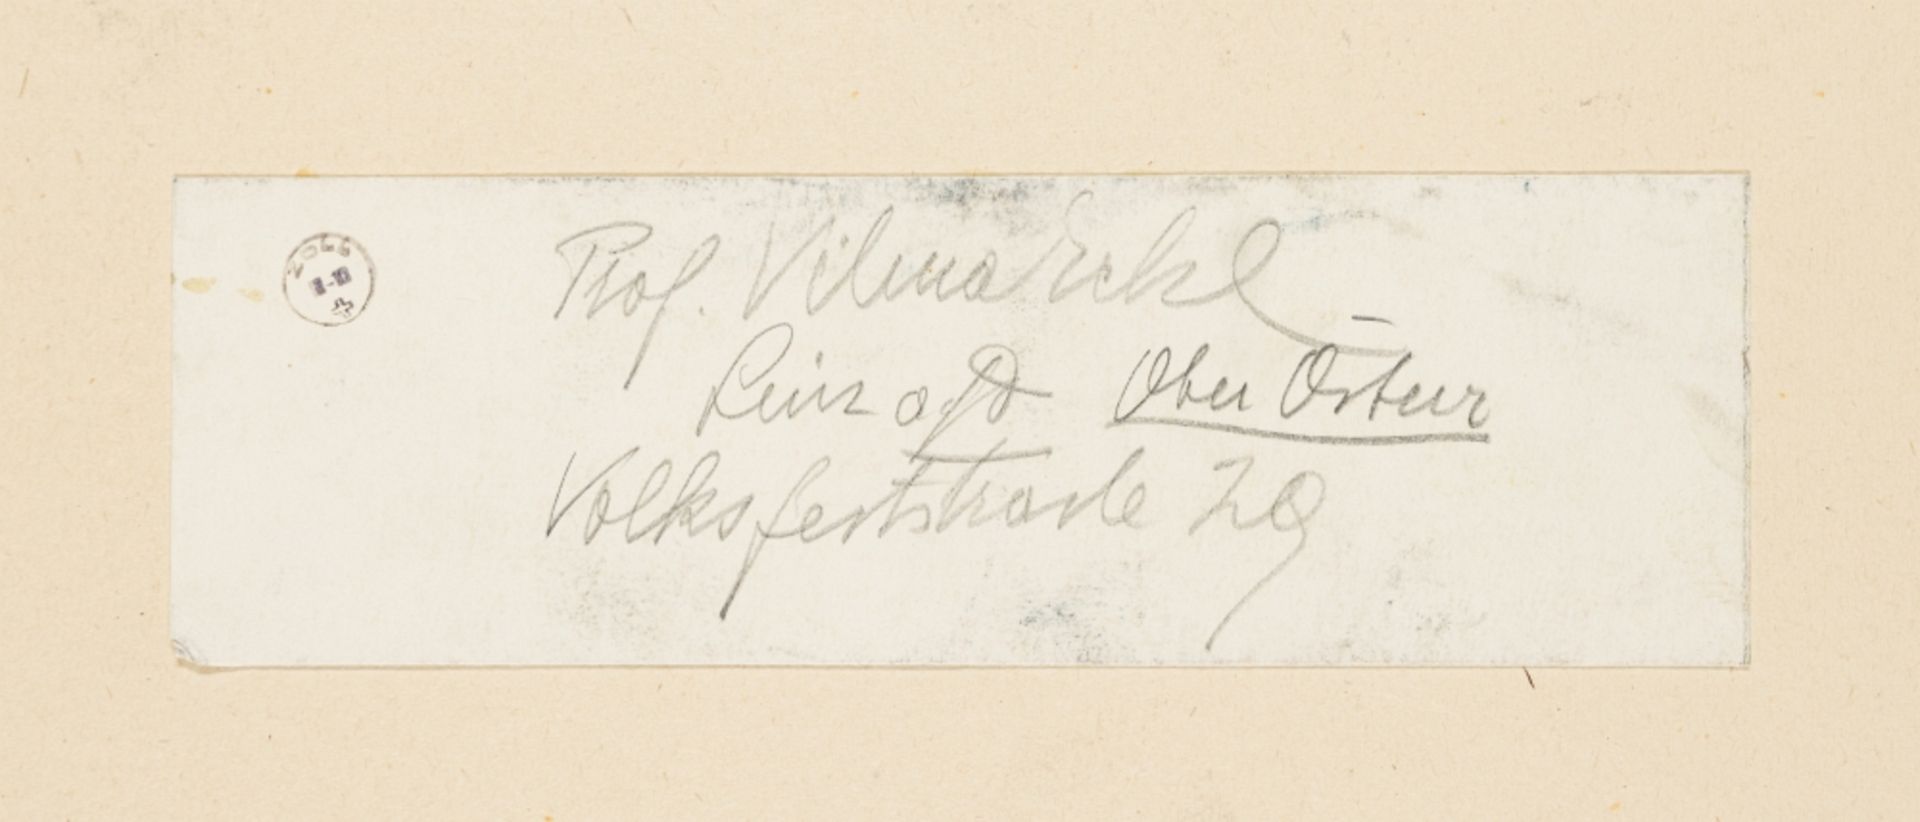 ZOLL
Prof. Vilma Eckl
Linz a/D Ober Österr
Volksfeststrasse 29